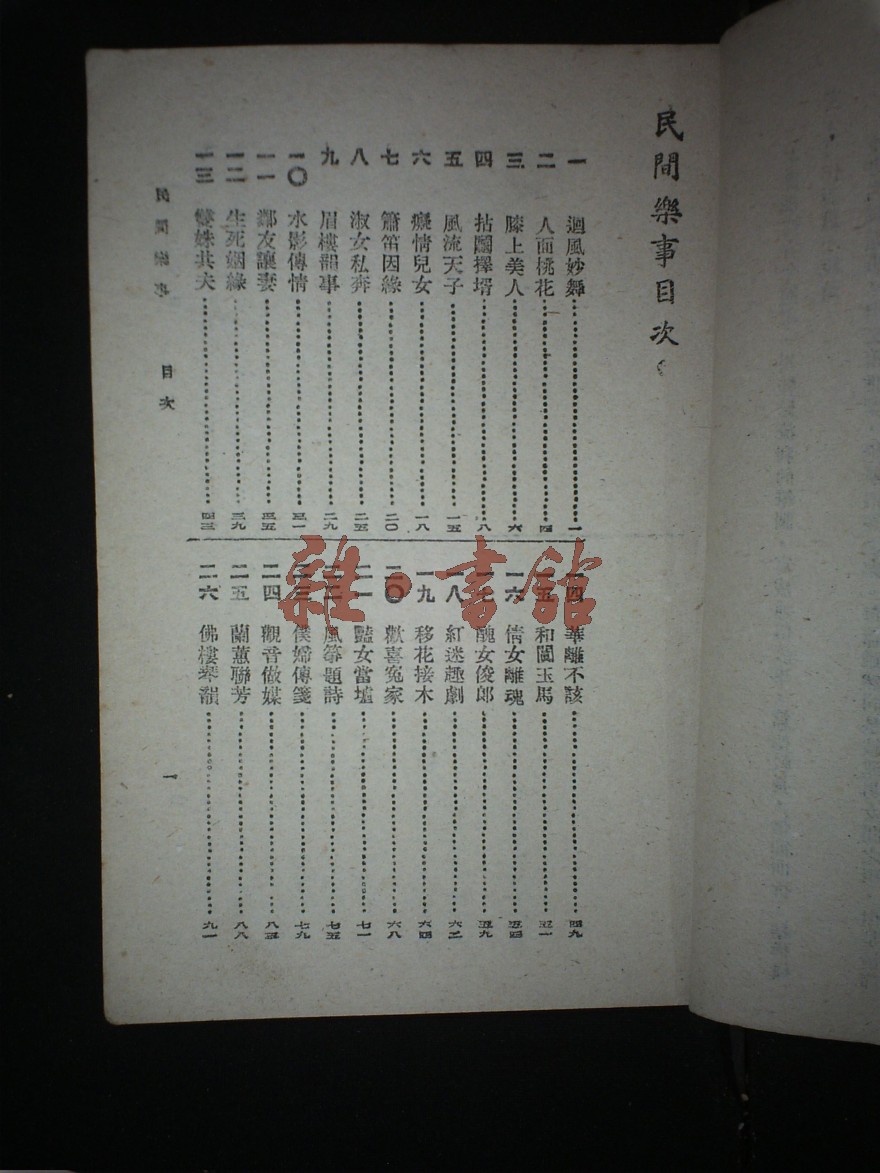 民間樂事目次
一 迴風妙舞 一
二 人面桃花 四
三 膝上美人 六
四 拈鬮擇壻 八
五 風流天子 一五
六 癡情兒女 一八
七 簫笛因緣 二〇
八 淑女私奔 二五
九 眉樓韻事 二九
一〇 水影傳情 三一
一一 鄰友讓妻 三五
一二 生死姻緣 三九
一三 雙姝共夫 四三
一四 華離不談 四九
一五 和闐玉馬 五一
一六 倩女離魂 五四
一七 醜女俊郎 五九
一八 紅迷趣劇 六二
一九 移花接木 六四
二〇 歡喜冤家 六八
二一 豔女當壚 七一
二二 風箏題詩 七五
二三 僕婦傳箋 七九
二四 觀音做媒 八五
二五 蘭蕙聯芳 八八
二六 佛樓琴韻 九一
民間樂事 目次 一
雜·書館